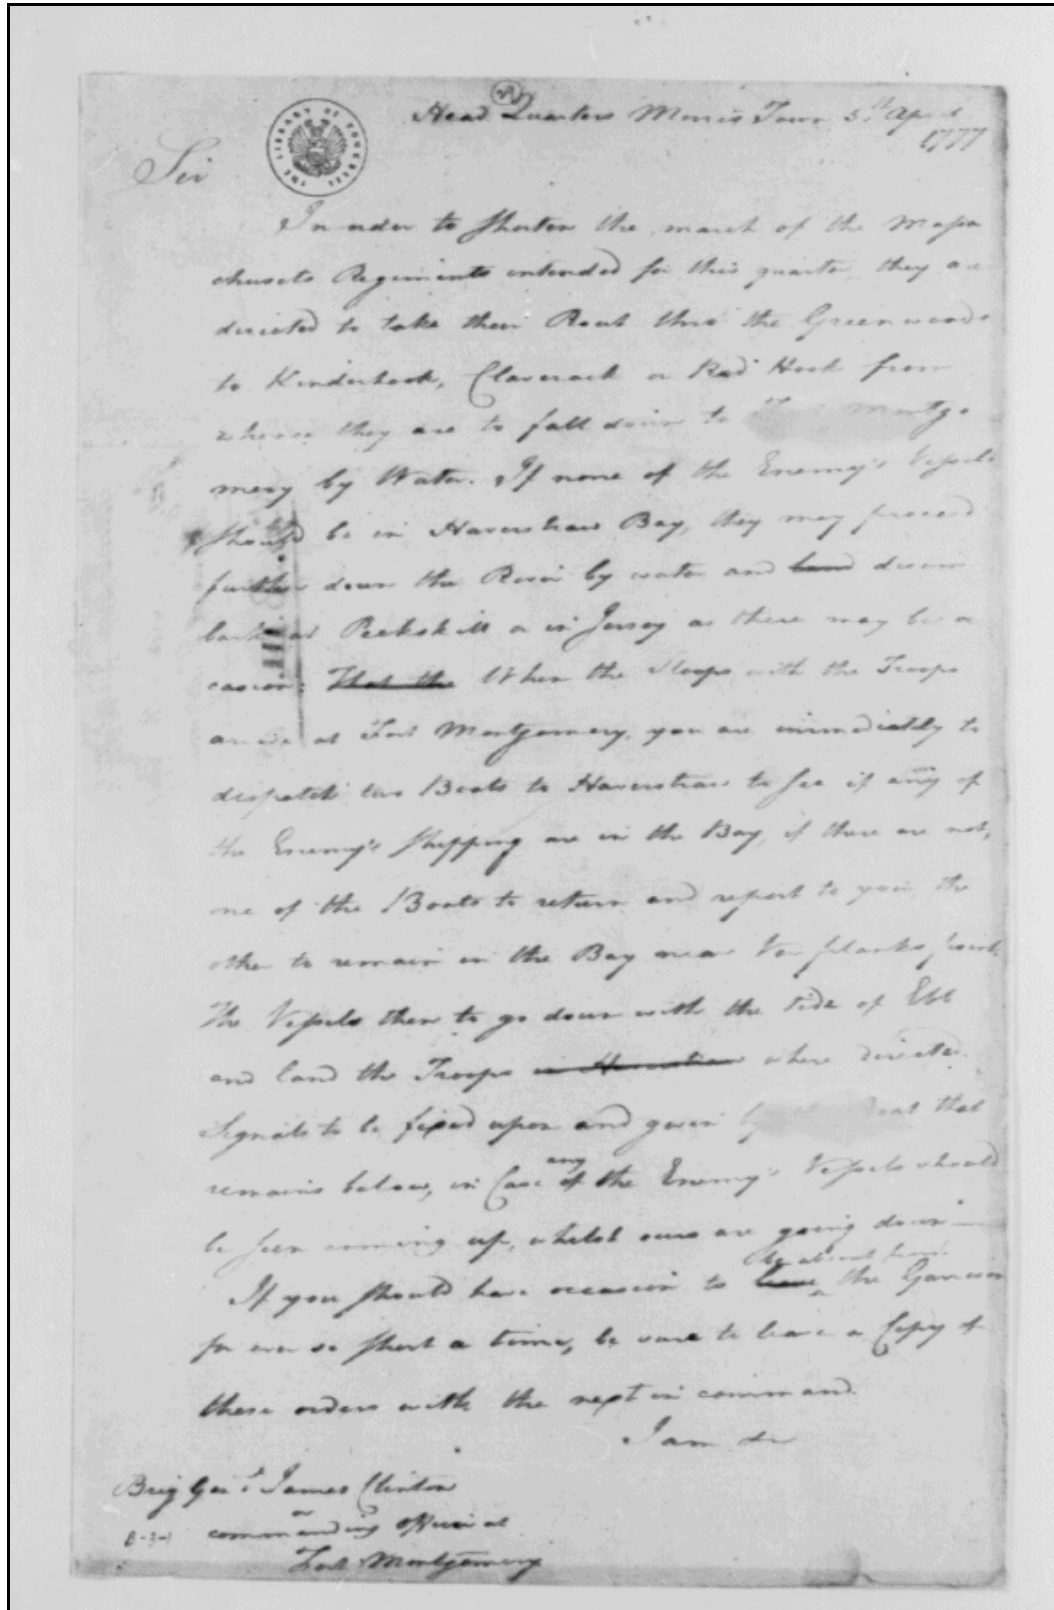 Head Quarters Morris Town 5th April
1777
THE LIBRARY OF CONGRESS
Sir
In order to shorten the march of the Massa
chusets Regiments intended for this quarter, they are
directed to take their Rout thro the Greenwoods
to Kinderhook, Claverack or Red Hook from
whence they are to fall down to Fort Montgo
mery by Water. If none of the Enemy's Vessels
should be in Haverstraw Bay, they may proceed
further down the River by water and land disem
bark at Peekskill or in Jersey as there may be oc
casion: That the When the Sloops with the Troops
arrive at Fort Montgomery, you are immediately to
dispatch two Boats to Haverstraw to see if any of
the Enemy's shipping are in the Bay, if there are not,
one of the Boats to return and report to you, the
other to remain in the Bay near Ver planks point.
The Vessels then to go down with the tide of Ebb
and land the Troops in Haverstraw where directed.
Signals to be fixed upon and given by the Boat that
remains below, in Case any of the Enemy's Vessels should
be seen coming up, whilst ours are going down
If you should have occasion to leave be absent from the Garrison
for ever so short a time, be sure to leave a Copy of
these orders with the next in command.
I am &c
Brig Genl. James Clinton
or
commanding officer at
Fort Montgomery